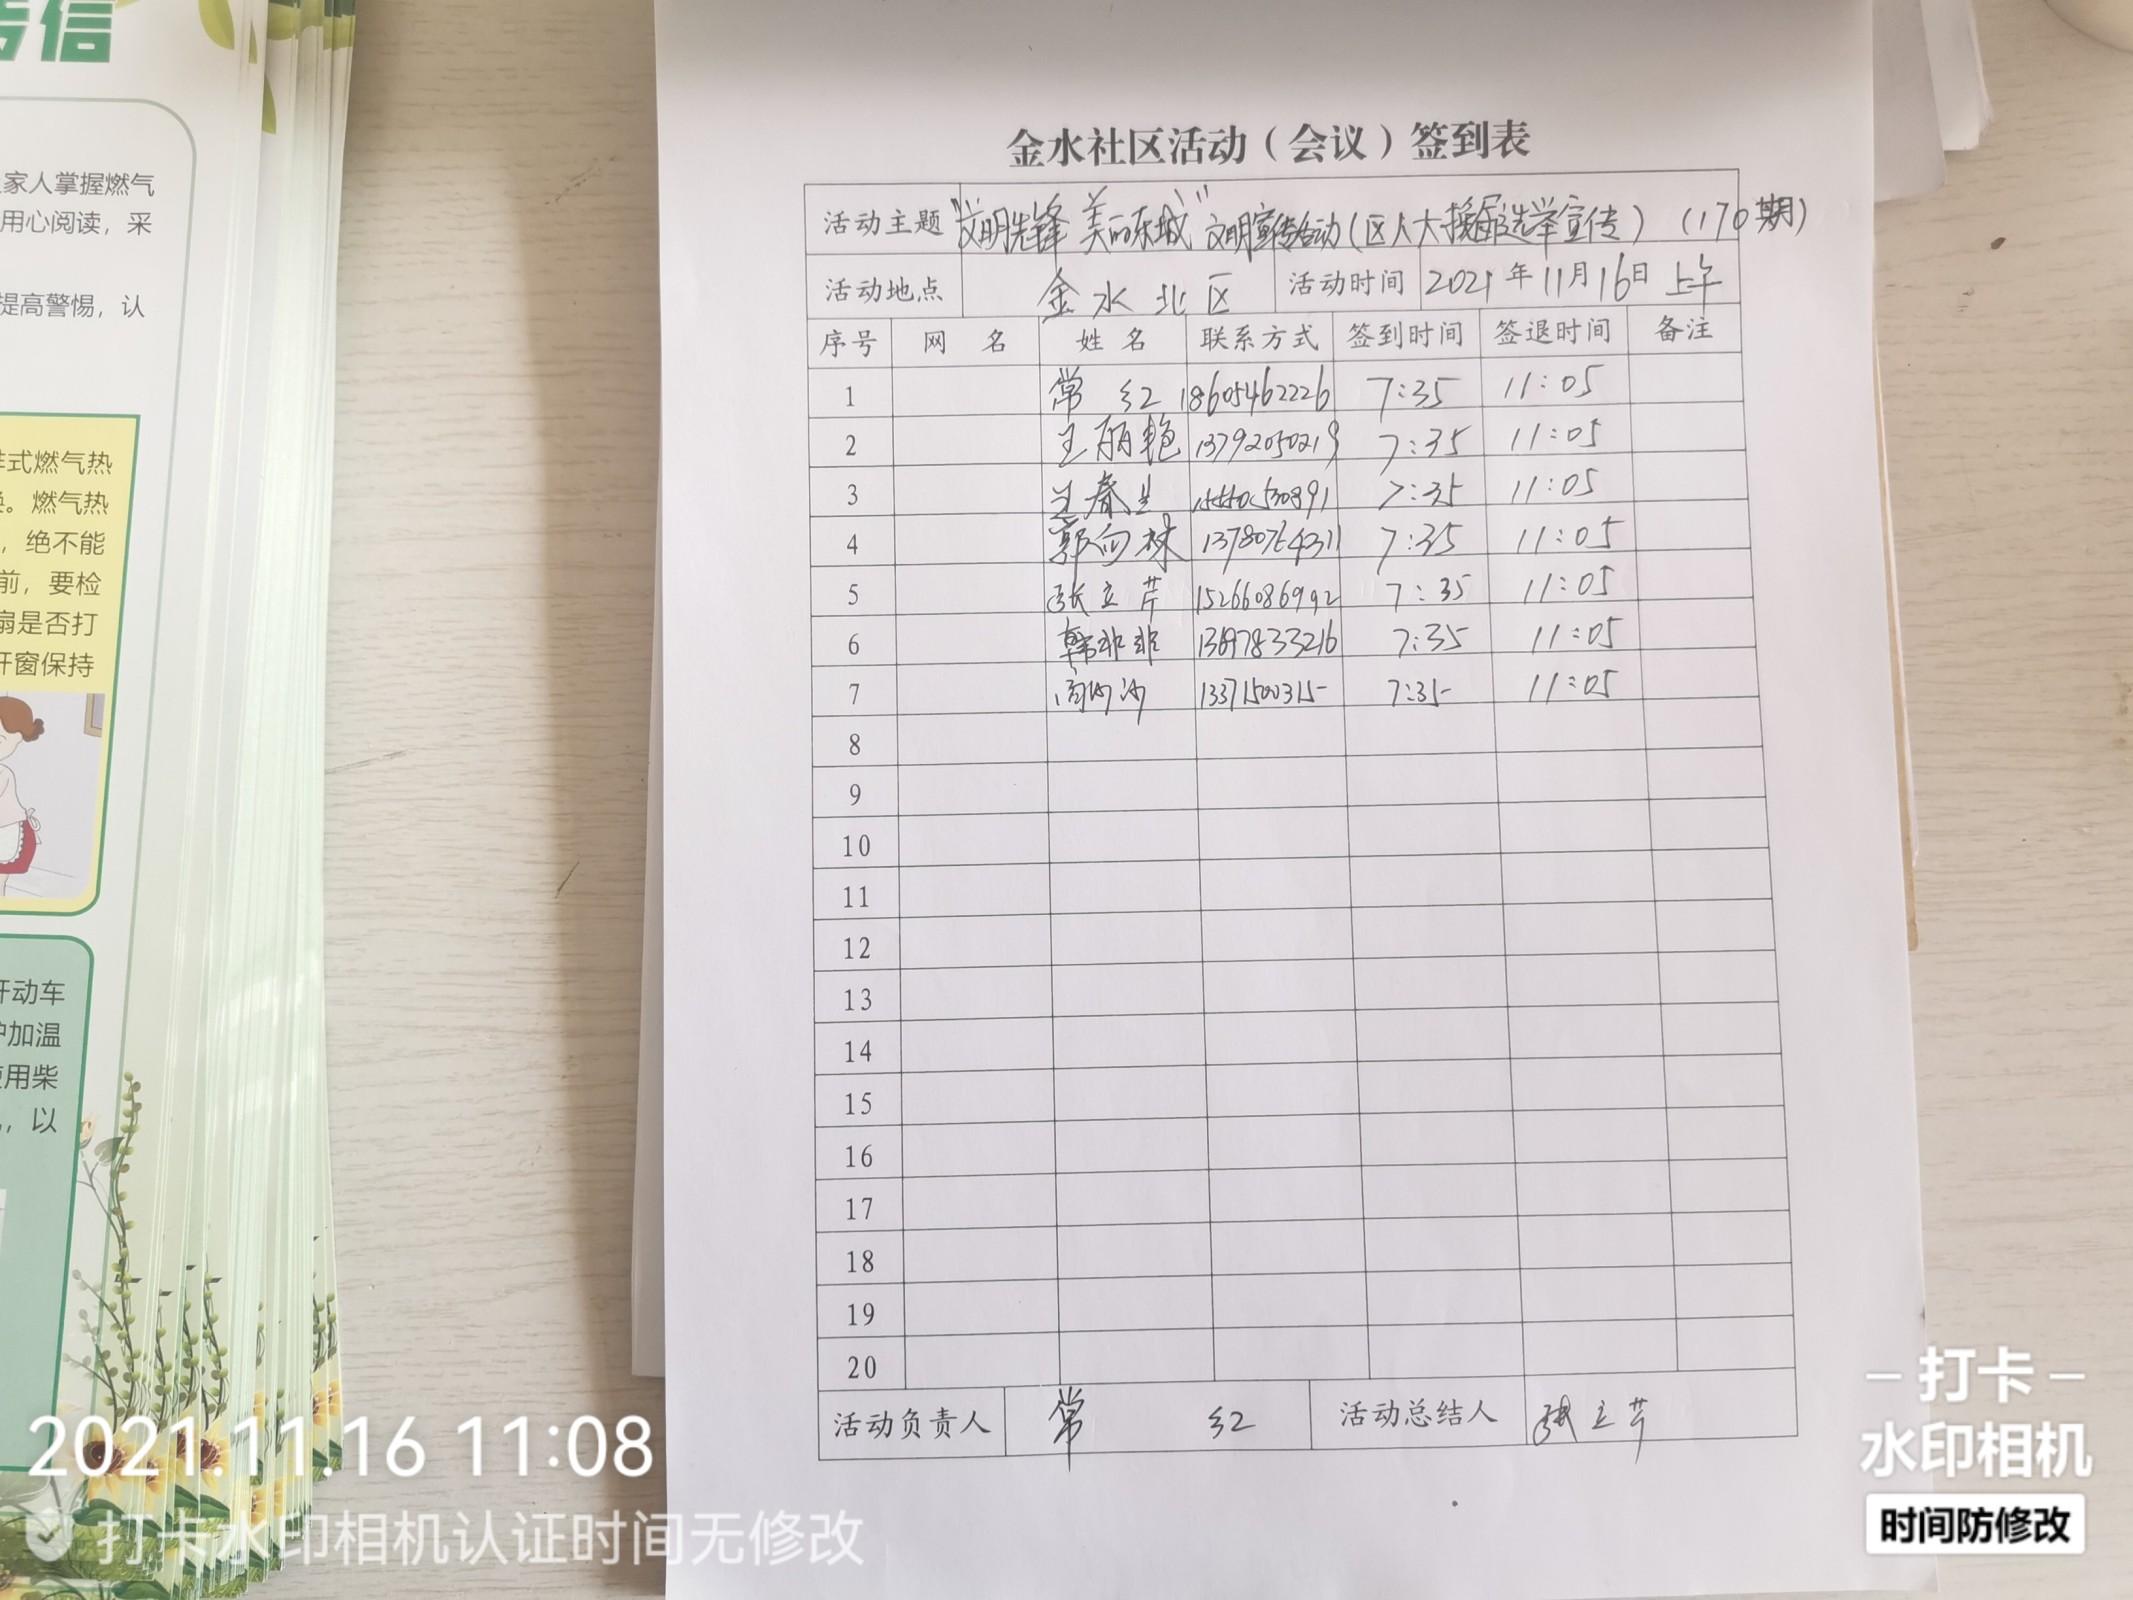 传信
家人掌握燃气
用心阅读，采
提高警惕，认
式燃气热
。燃气热
，绝不能
前，要检
扇是否打
开窗保持
开动车
炉加温
使用柴
，以
金水社区活动（会议）签到表
活动主题 “文明先锋 美丽东城” 文明宣传活动（区人大换届选举宣传）（170期）
活动地点 金水北区 活动时间 2021年11月16日 上午
序号 网名 姓名 联系方式 签到时间 签退时间 备注
1 常红 18605462226 7:35 11:05
2 王丽艳 13792050219 7:35 11:05
3 王春兰 7:35 11:05
4 郭向林 7:35 11:05
5 张立芹 15266086992 7:35 11:05
6 韩非非 7:35 11:05
7 13371500315 7:35 11:05
8
9
10
11
12
13
14
15
16
17
18
19
20
活动负责人 常红 活动总结人 张立芹
2021.11.16 11:08
打卡水印相机认证时间无修改
打卡
水印相机
时间防修改